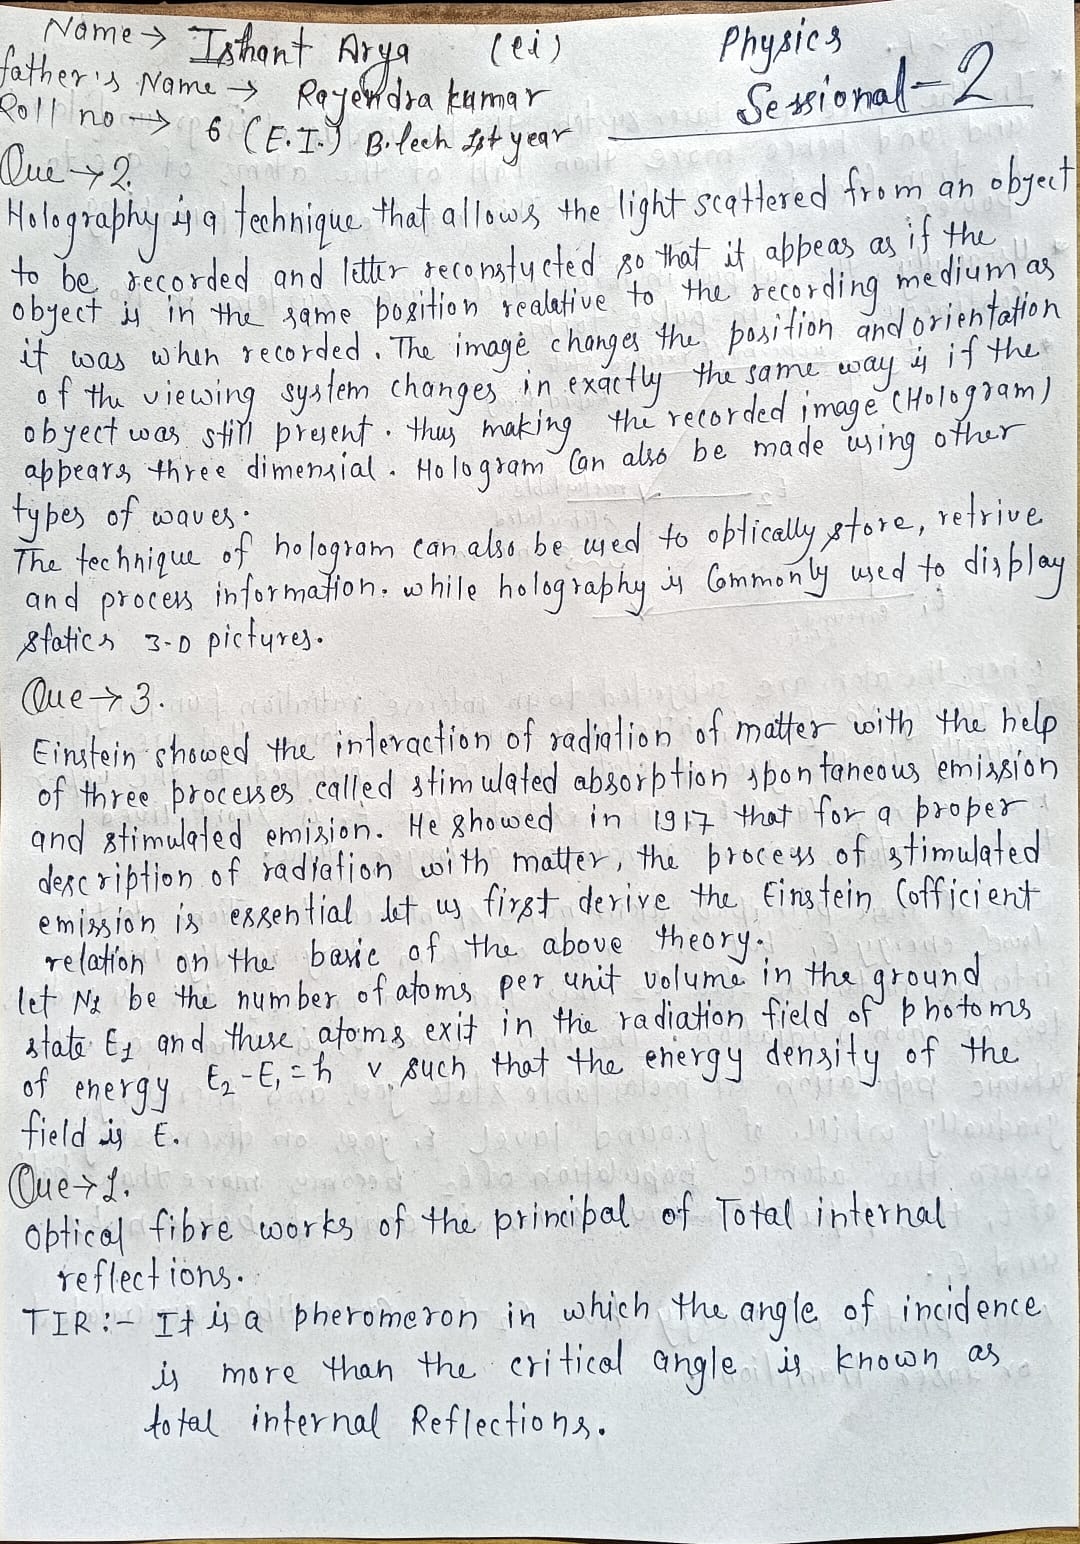 Name → Ishant Arya (ei)
Physics
Sessional-2
father's Name → Rajendra kumar
Roll no → 6 (E.I.) B.tech 1st year
Que → 2.
Holography is a technique that allows the light scattered from an object
to be recorded and letter reconstucted so that it appeas as if the
object is in the same position realative to the recording medium as
it was when recorded. The image changes the position and orientation
of the viewing system changes in exactly the same way is if the
object was still present. thus making the recorded image (Hologram)
appears three dimensial. Hologram Can also be made using other
types of waves.
The technique of hologram can also be used to optically store, retrive
and process information. while holography is Commonly used to display
statics 3-D pictures.
Que → 3.
Einstein showed the interaction of radiation of matter with the help
of three processes called stimulated absorption spontaneous emission
and stimulated emision. He showed in 1917 that for a proper
description of radiation with matter, the process of stimulated
emission is essential let us first derive the Einstein Cofficient
relation on the basic of the above theory.
let N1 be the number of atoms per unit volume in the ground
state E1 and these atoms exit in the radiation field of photoms
of energy E2-E1=h v such that the energy density of the
field is E.
Que → 1.
Optical fibre works of the principal of Total internal
reflections.
TIR :- It is a pheromeron in which the angle of incidence
is more than the critical angle is known as
total internal Reflections.